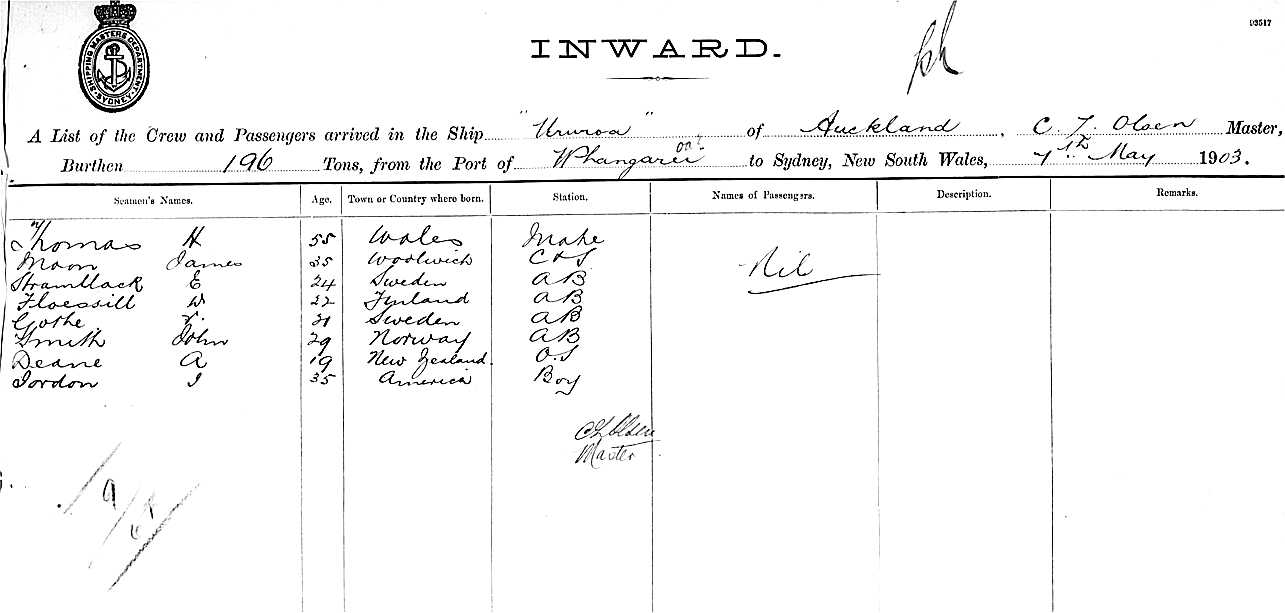 SHIPPING MASTERS DEPARTMENT SYDNEY
93517
INWARD.
A List of the Crew and Passengers arrived in the Ship "Ururoa" of Auckland, C. T. Olsen Master,
Burthen 196 Tons, from the Port of Whangaroa to Sydney, New South Wales, 7th May 1903.
Seamen's Names. Age. Town or Country where born. Station. Names of Passengers. Description. Remarks.
Thomas H 55 Wales Mate Nil
Moon James 35 Woolwich C & S
E 24 Sweden AB
W 22 Finland AB
Gothe 21 Sweden AB
Smith John 29 Norway AB
Deane A 19 New Zealand. O.S
Jordon J 35 America Boy
Olsen
Master